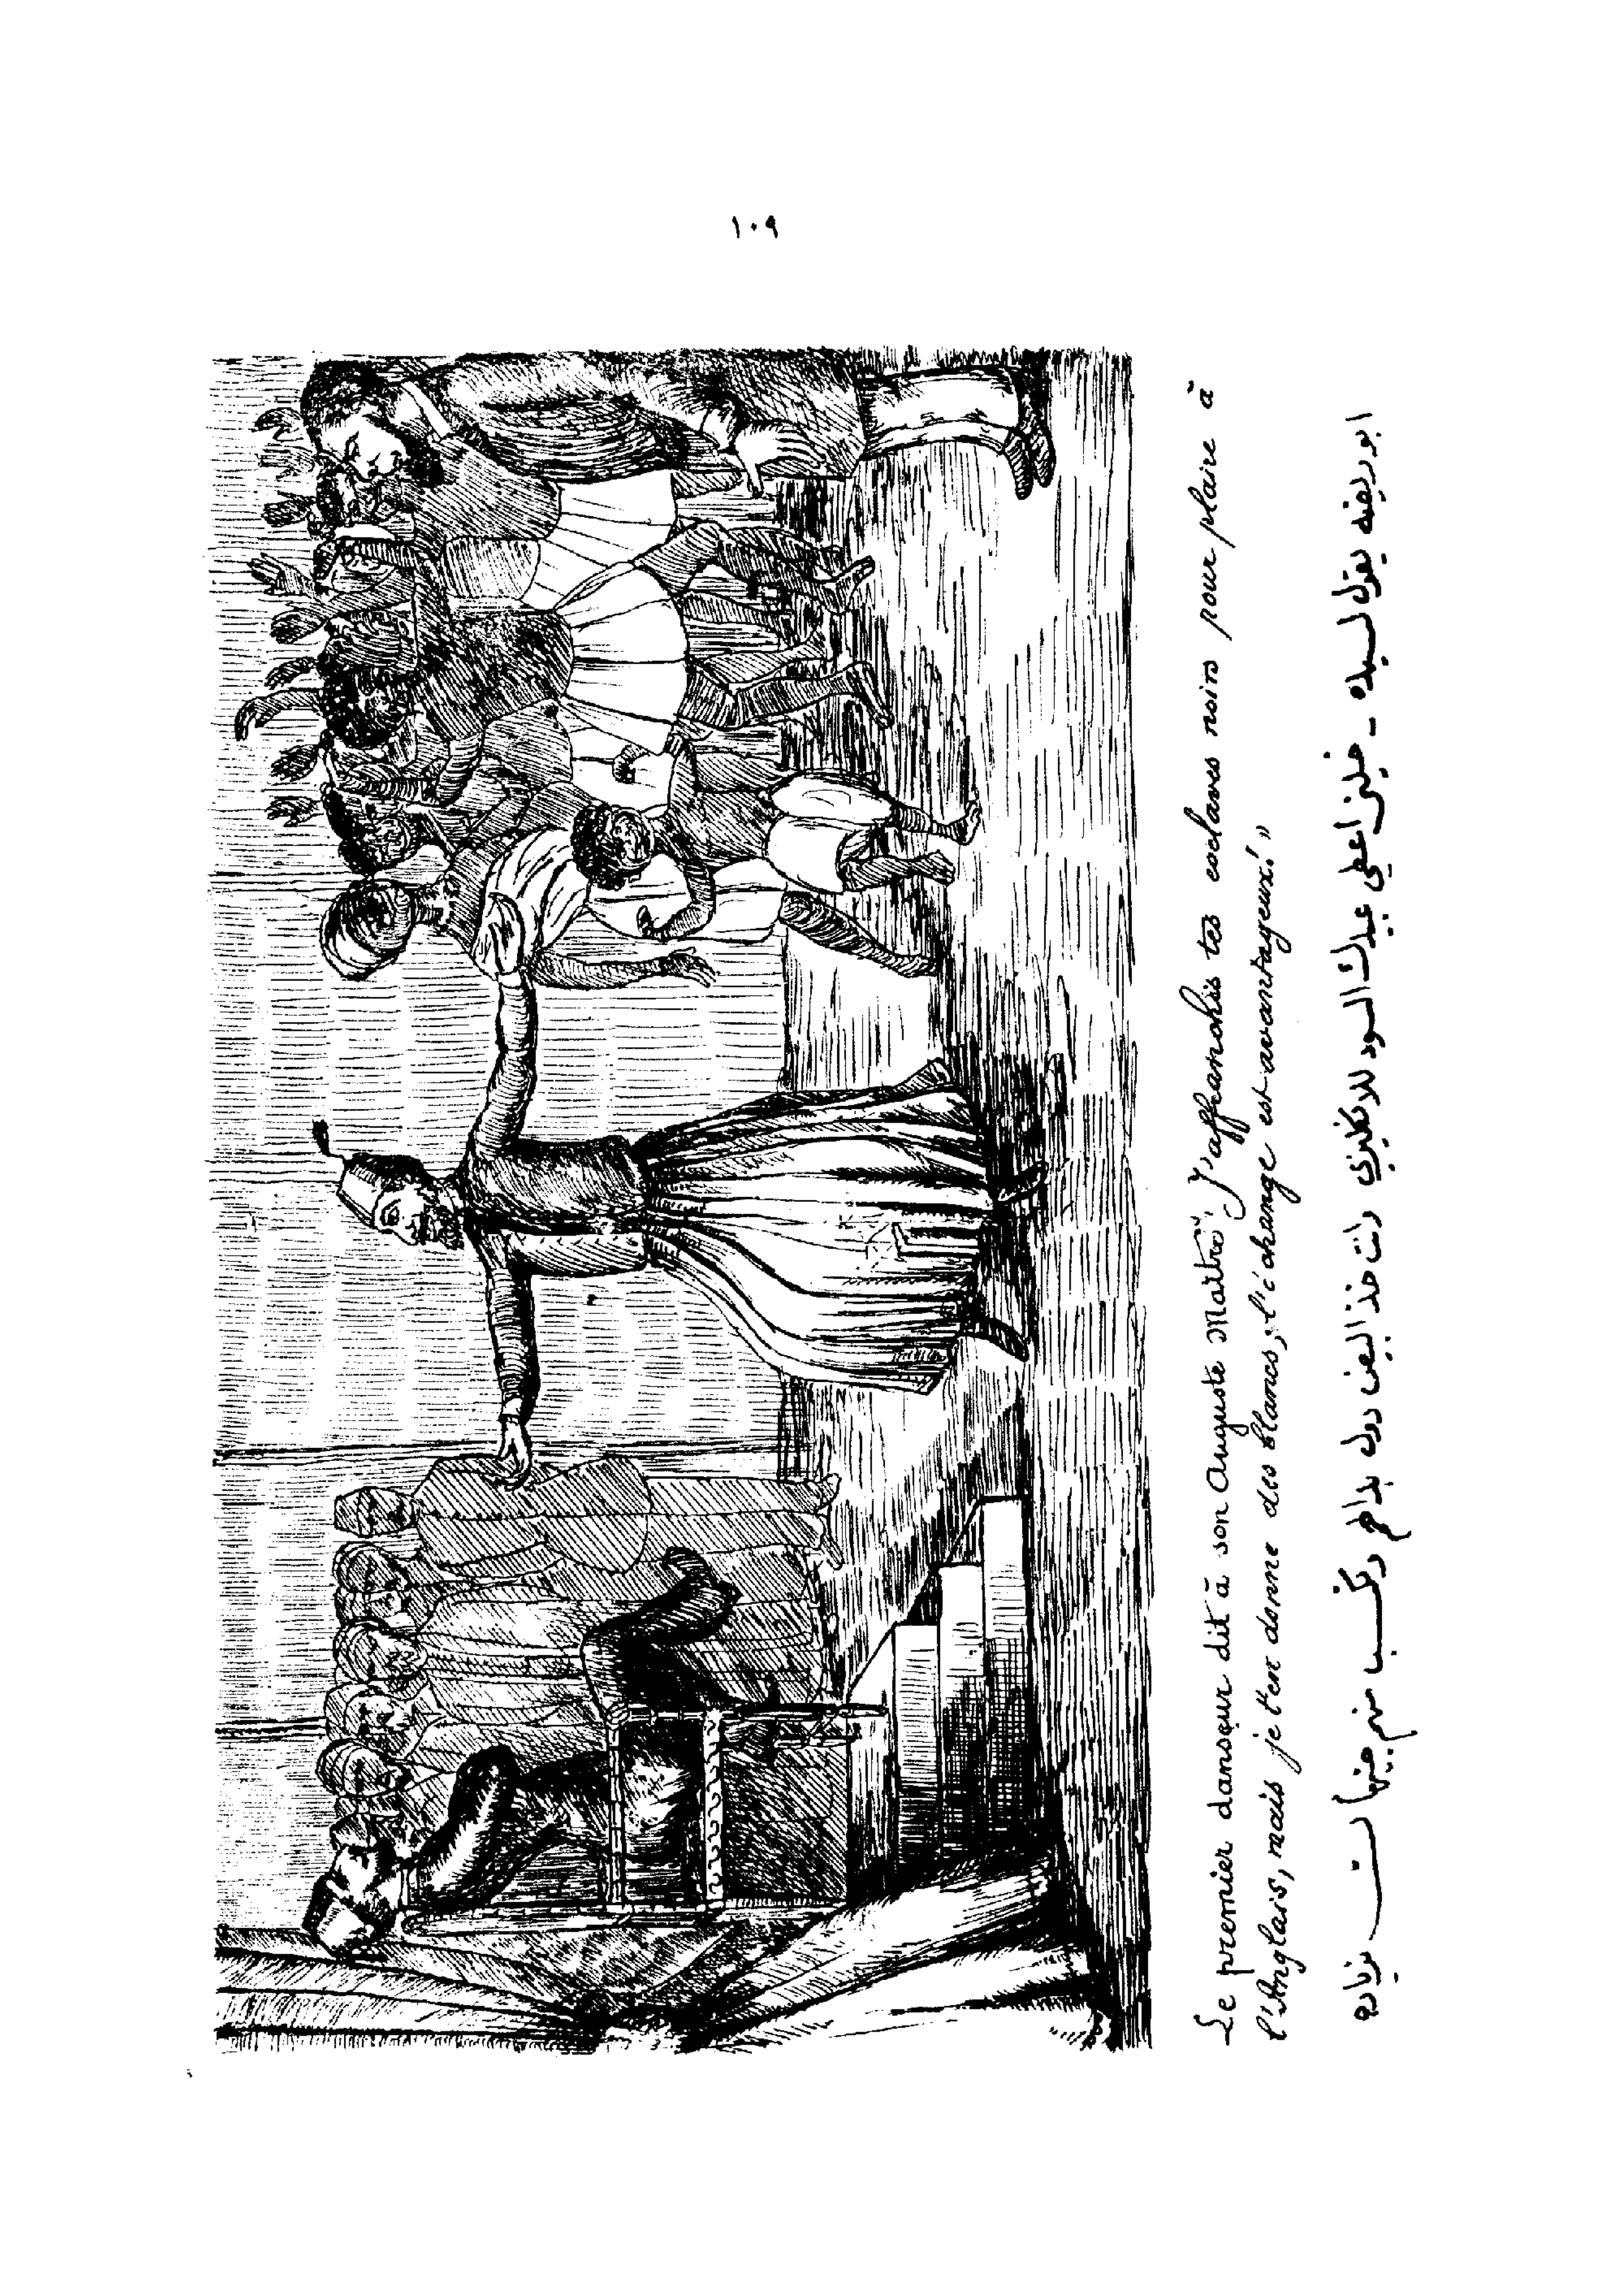 ١٠٩
Le premier danseur dit à son Auguste Maître, "J'affranchis tes esclaves noirs pour plaire à
l'Anglais, mais je t'en donne des blancs, l'échange est avantageux!"
ابو ريضه يقول لسيده - خليني اعطي عبيدك السود للانكليزي وانت خذ البيض دول بدالهم وتكسب منهم جنيهات بزياده